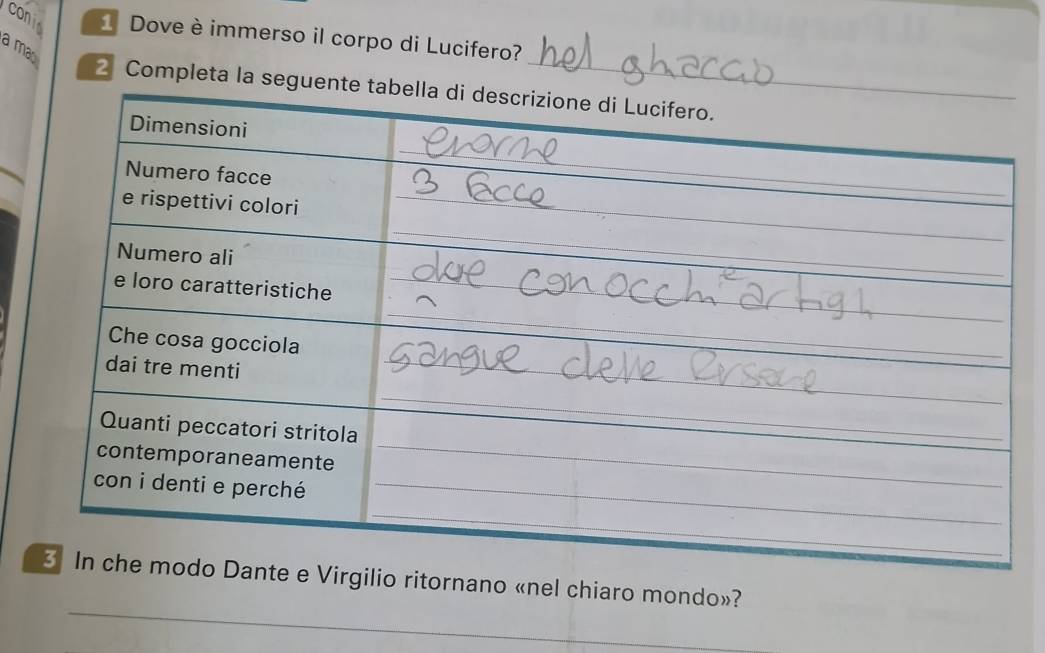 con
a ma
1 Dove è immerso il corpo di Lucifero? nel ghaccio
2 Completa la seguente tabella di descrizione di Lucifero.
Dimensioni enorme
Numero facce 3 facce
e rispettivi colori
Numero ali due con occhi e artigli
e loro caratteristiche
Che cosa gocciola sangue delle persone
dai tre menti
Quanti peccatori stritola
contemporaneamente
con i denti e perché
3 In che modo Dante e Virgilio ritornano «nel chiaro mondo»?